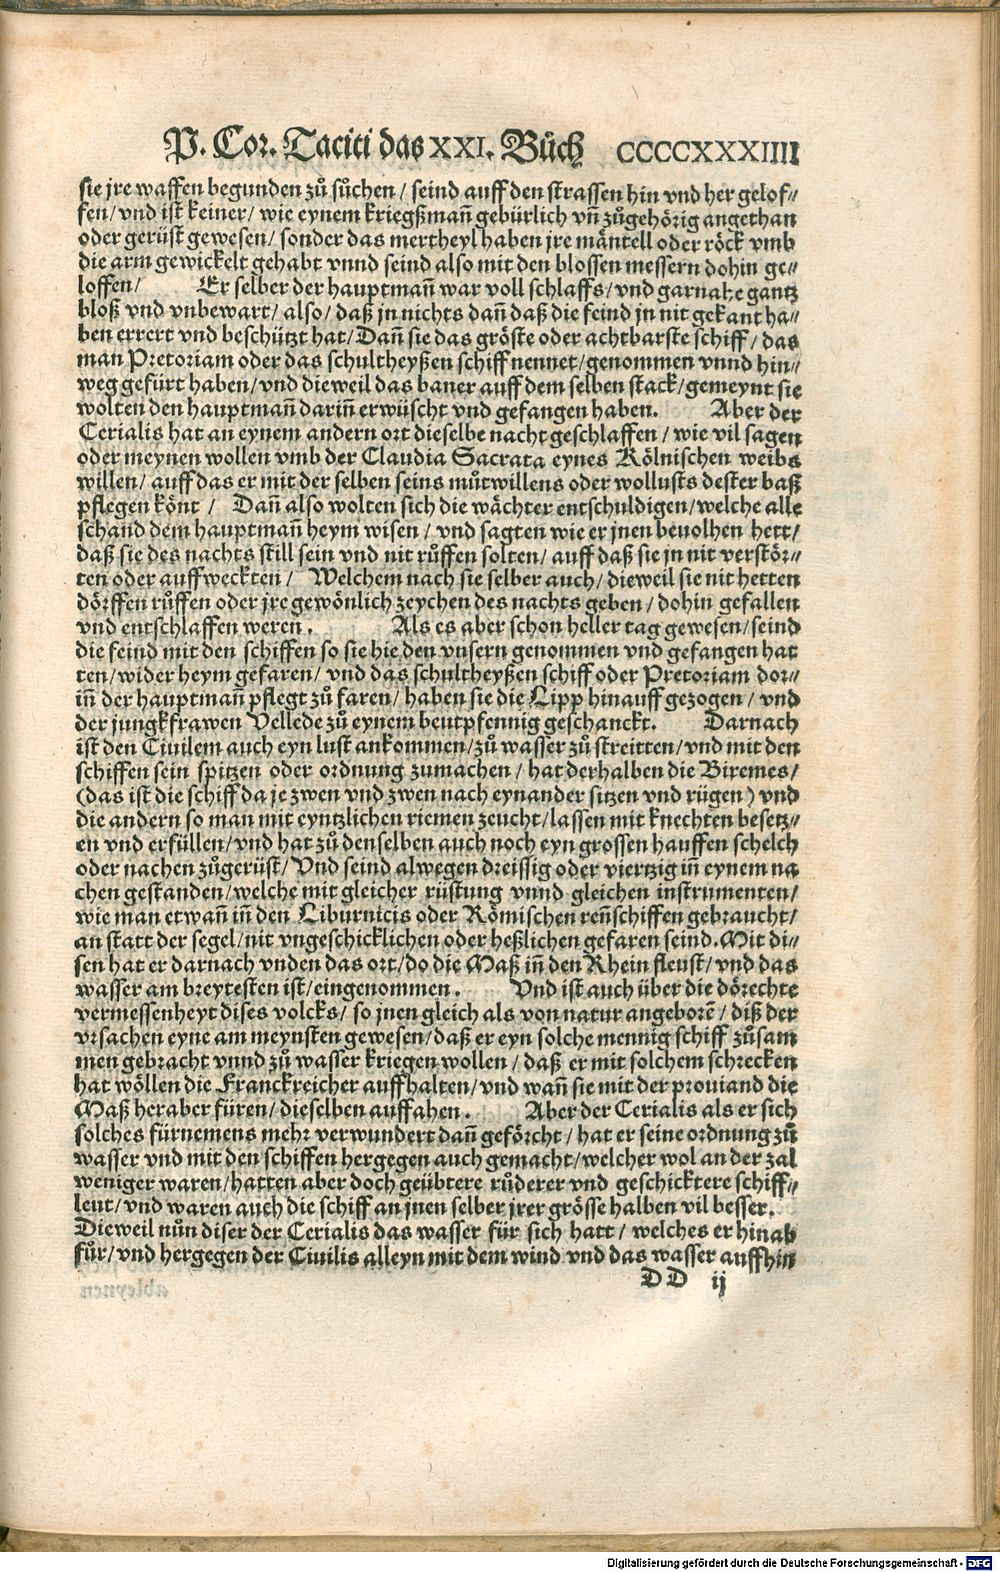 P. Cor. Taciti das XXI. Bůch CCCCXXXIIII
sie jre waffen begunden zů sůchen / seind auff den strassen hin vnd her gelof⸗
fen / vnd ist keiner / wie eynem kriegßmañ gebürlich vñ zůgehörig angethan
oder gerüst gewesen / sonder das mertheyl haben jre mäntell oder röck vmb
die arm gewickelt gehabt vnnd seind also mit den blossen messern dohin ge⸗
loffen / Er selber der hauptmañ war voll schlaffs / vnd garnahe gantz
bloß vnd vnbewart / also / daß jn nichts dañ daß die feind jn nit gekant ha⸗
ben errert vnd beschützt hat / Dañ sie das gröste oder achtbarste schiff / das
man Pretoriam oder das schultheyßen schiff nennet / genommen vnnd hin⸗
weg gefürt haben / vnd dieweil das baner auff dem selben stack / gemeynt sie
wolten den hauptmañ dariñ erwüscht vnd gefangen haben. Aber der
Cerialis hat an eynem andern ort dieselbe nacht geschlaffen / wie vil sagen
oder meynen wollen vmb der Claudia Sacrata eynes Kölnischen weibs
willen / auff das er mit der selben seins můtwillens oder wollusts dester baß
pflegen könt / Dañ also wolten sich die wächter entschuldigen / welche alle
schand dem hauptmañ heym wisen / vnd sagten wie er jnen beuolhen hett /
daß sie des nachts still sein vnd nit růffen solten / auff daß sie jn nit verstör⸗
ten oder auffweckten / Welchem nach sie selber auch / dieweil sie nit hetten
dörffen růffen oder jre gewönlich zeychen des nachts geben / dohin gefallen
vnd entschlaffen weren. Als es aber schon heller tag gewesen / seind
die feind mit den schiffen so sie hie den vnsern genommen vnd gefangen hat
ten / wider heym gefaren / vnd das schultheyßen schiff oder Pretoriam dor⸗
iñ der hauptmañ pflegt zů faren / haben sie die Lipp hinauff gezogen / vnd
der jungkfrawen Vellede zů eynem beutpfennig geschanckt. Darnach
ist den Ciuilem auch eyn lust ankommen / zů wasser zů streitten / vnd mit den
schiffen sein spitzen oder ordnung zumachen / hat derhalben die Biremes /
(das ist die schiff da je zwen vnd zwen nach eynander sitzen vnd rügen) vnd
die andern so man mit eyntzlichen riemen zeucht / lassen mit knechten besetz⸗
en vnd erfüllen / vnd hat zů denselben auch noch eyn grossen hauffen schelch
oder nachen zůgerüst / Vnd seind alwegen dreissig oder viertzig iñ eynem na
chen gestanden / welche mit gleicher rüstung vnnd gleichen instrumenten /
wie man etwañ iñ den Liburnicis oder Römischen reñschiffen gebraucht /
an statt der segel / nit vngeschicklichen oder heßlichen gefaren seind. Mit di⸗
sen hat er darnach vnden das ort / do die Maß iñ den Rhein fleust / vnd das
wasser am breytesten ist / eingenommen. Vnd ist auch über die dörechte
vermessenheyt dises volcks / so jnen gleich als von natur angeborẽ / diß der
vrsachen eyne am meynsten gewesen / daß er eyn solche mennig schiff zůsam
men gebracht vnnd zů wasser kriegen wollen / daß er mit solchem schrecken
hat wöllen die Franckreicher auffhalten / vnd wañ sie mit der prouiand die
Maß heraber füren / dieselben auffahen. Aber der Cerialis als er sich
solches fürnemens mehr verwundert dañ geförcht / hat er seine ordnung zů
wasser vnd mit den schiffen hergegen auch gemacht / welcher wol an der zal
weniger waren / hatten aber doch geübtere růderer vnd geschicktere schiff⸗
leut / vnd waren auch die schiff an jnen selber jrer grösse halben vil besser.
Dieweil nůn diser der Cerialis das wasser für sich hatt / welches er hinab
fůr / vnd hergegen der Ciuilis alleyn mit dem wind vnd das wasser auffhin
DD ij
Digitalisierung gefördert durch die Deutsche Forschungsgemeinschaft - DFG